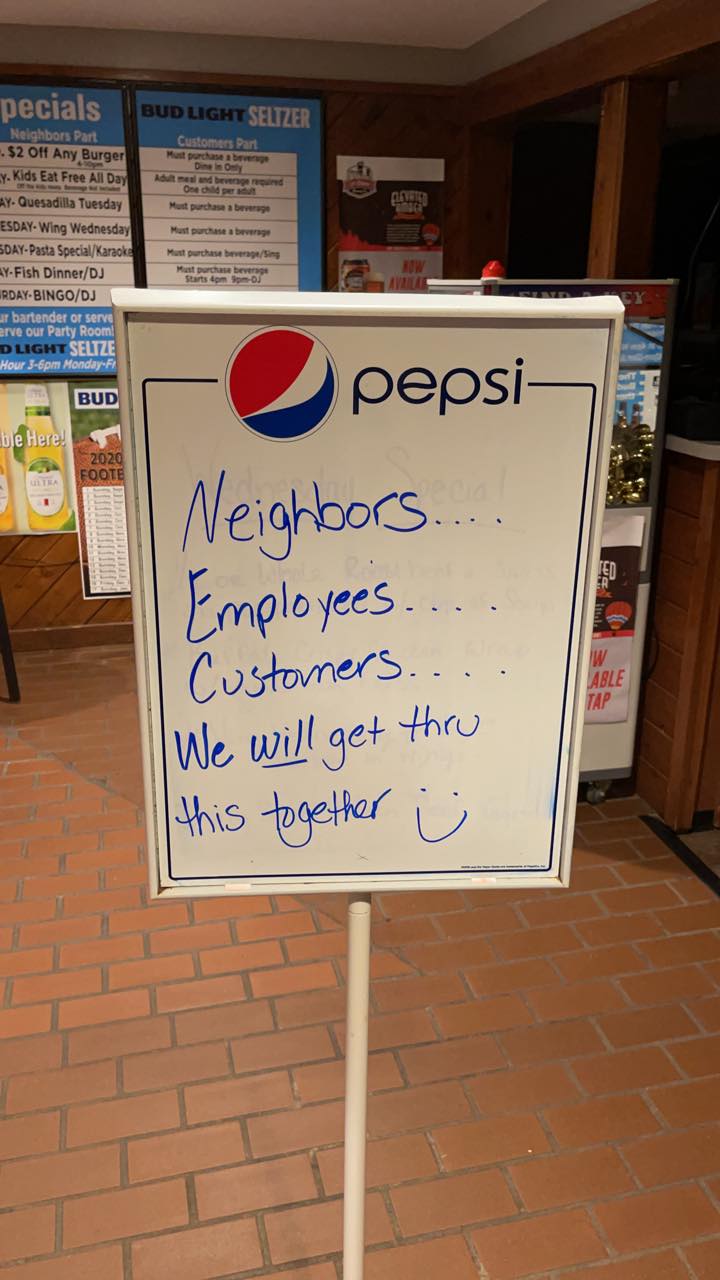 pecials
Neighbors Part
. $2 Off Any Burger
4-10pm
Y- Kids Eat Free All Day
AY- Quesadilla Tuesday
ESDAY- Wing Wednesday
SDAY-Pasta Special/Karaoke
AY-Fish Dinner/DJ
RDAY-BINGO/DJ
ur bartender or serve
erve our Party Room!
D LIGHT SELTZE
Hour 3-6pm Monday-Fr
BUD LIGHT SELTZER
Customers Part
Must purchase a beverage
Dine in Only
Adult meal and beverage required
One child per adult
Must purchase a beverage
Must purchase a beverage
Must purchase beverage/Sing
Must purchase beverage
Starts 4pm 9pm-DJ
ELEVATED
NOW
AVAILAB
ble Here!
ULTRA
BUD
2020
FOOTB
pepsi
Wednesday Special
Neighbors....
Employees....
Customers....
We will get thru
this together
TED
ER
W
ABLE
TAP